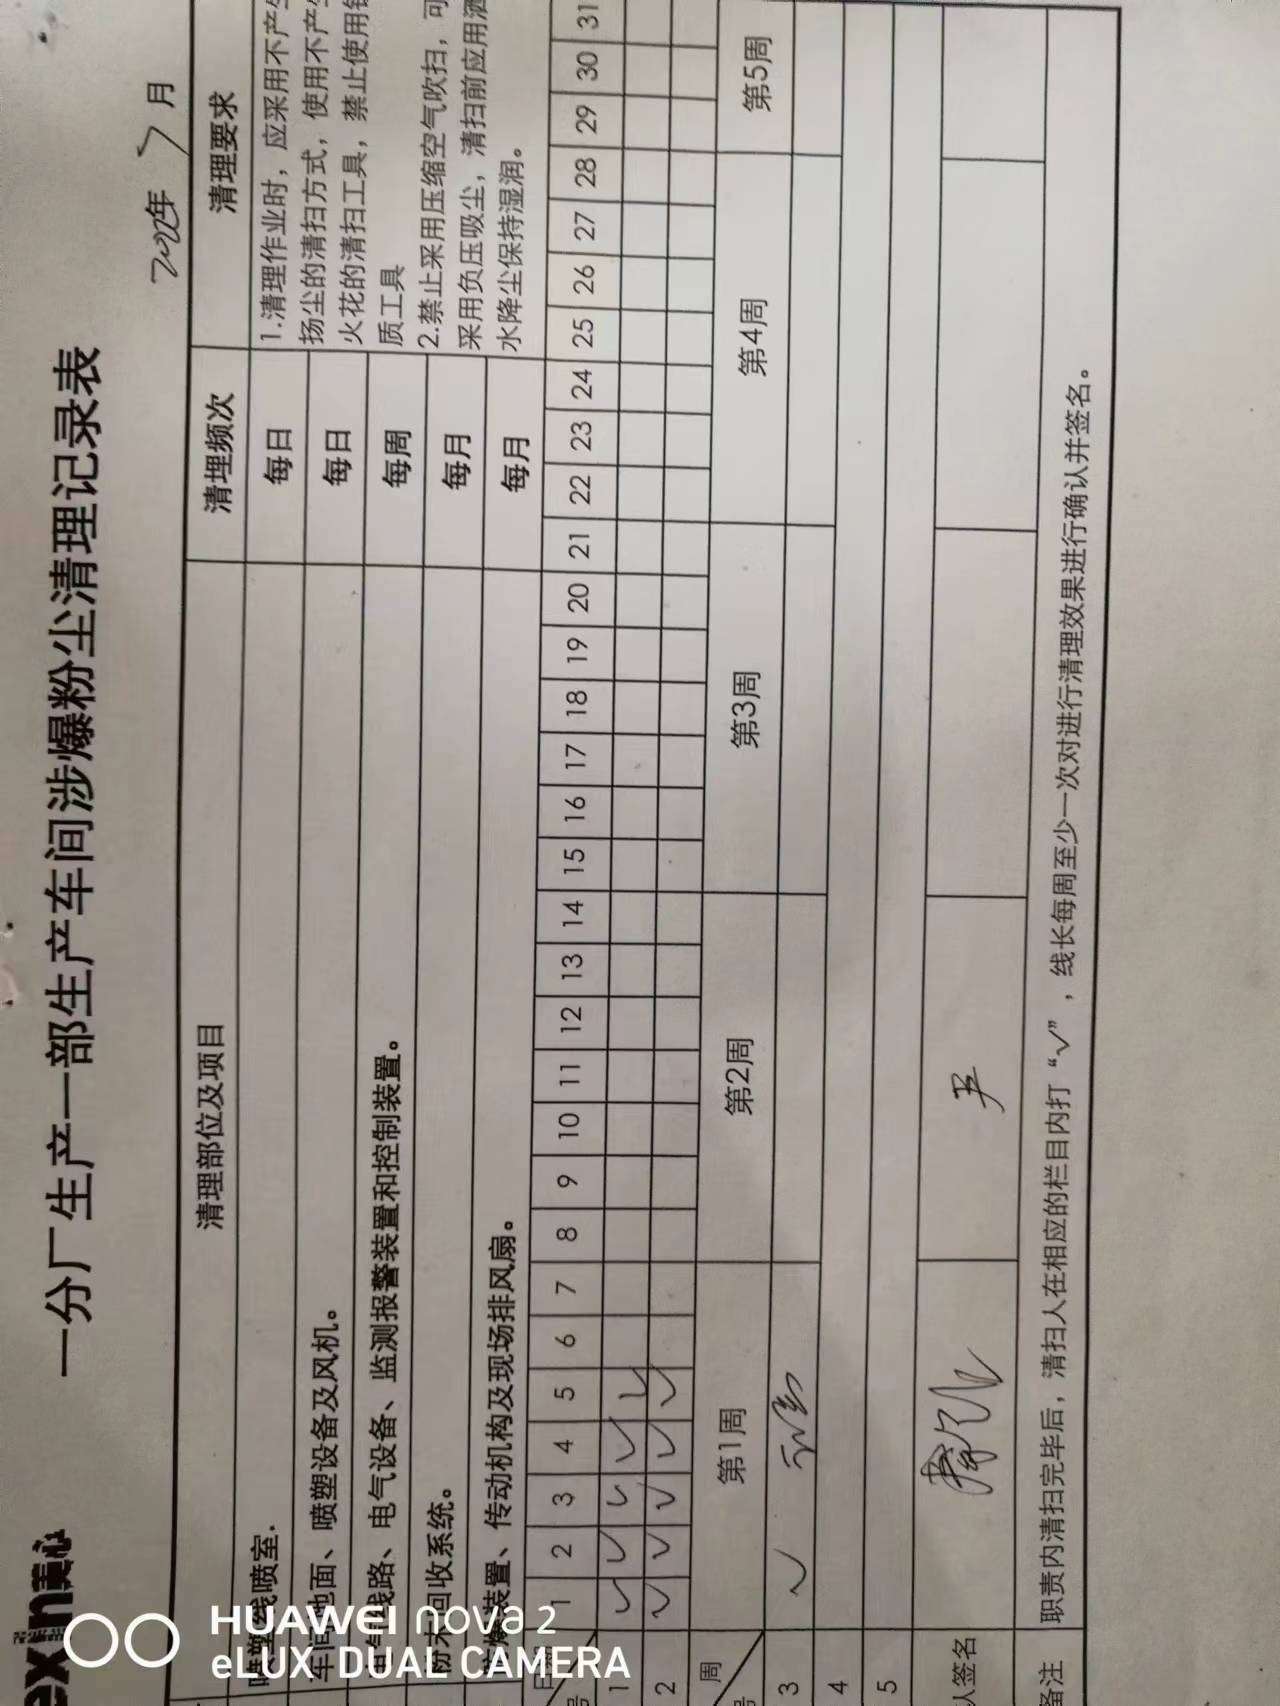 exin美心
一分厂生产一部生产车间涉爆粉尘清理记录表
2022年 7 月
清理部位及项目 清理频次 清理要求
喷塑线喷室. 每日
车间地面、喷塑设备及风机。 每日
电气线路、电气设备、监测报警装置和控制装置。 每周
粉末回收系统。 每月
装置、传动机构及现场排风扇。 每月
1.清理作业时，应采用不产生
扬尘的清扫方式，使用不产生
火花的清扫工具，禁止使用铁
质工具
2.禁止采用压缩空气吹扫，可
采用负压吸尘，清扫前应用洒
水降尘保持湿润。
日期 1 2 3 4 5 6 7 8 9 10 11 12 13 14 15 16 17 18 19 20 21 22 23 24 25 26 27 28 29 30 31
号
1 ✓ ✓ ✓ ✓ ✓
2 ✓ ✓ ✓ ✓ ✓
周 第1周 第2周 第3周 第4周 第5周
号
3 ✓
4
5
认签名 尹
备注 职责内清扫完毕后，清扫人在相应的栏目内打“✓”，线长每周至少一次对进行清理效果进行确认并签名。
HUAWEI nova 2
eLUX DUAL CAMERA